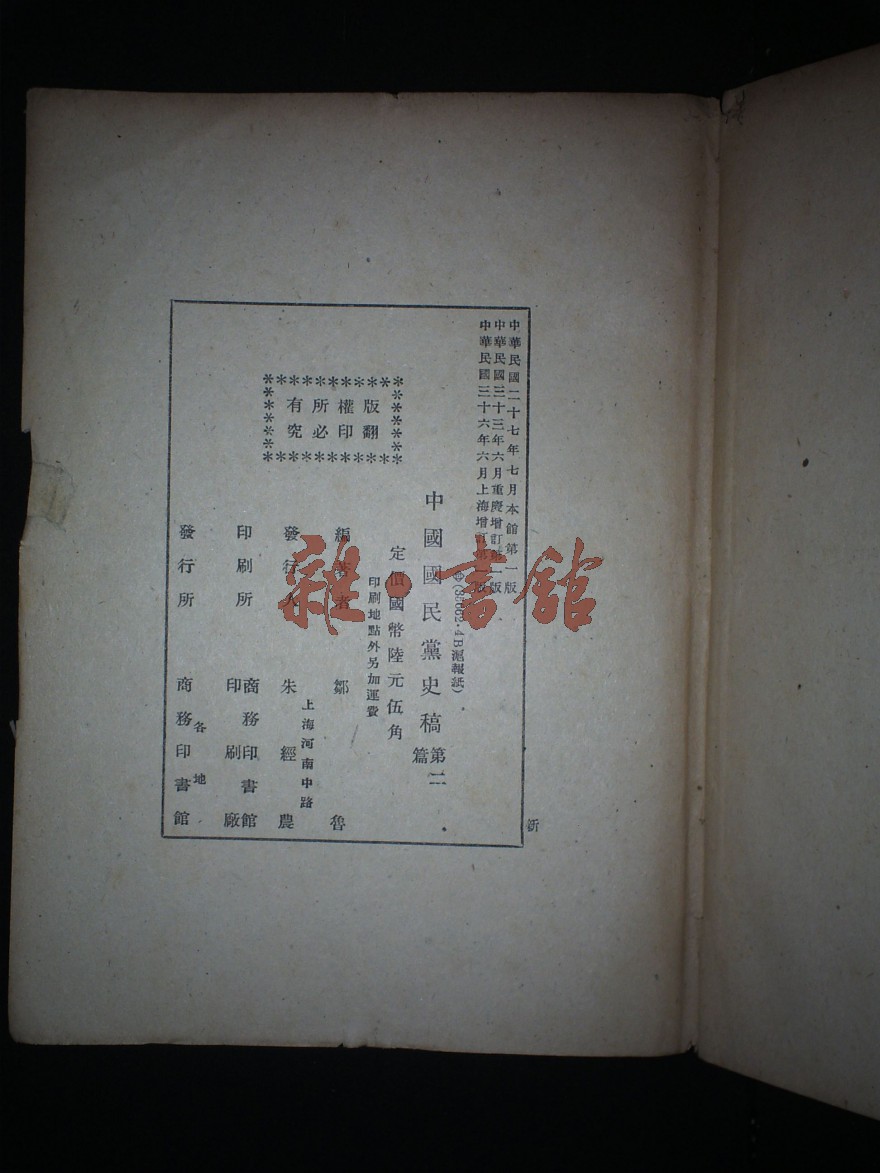 中華民國二十七年七月本館第一版
中華民國三十三年六月重慶增訂第一版
中華民國三十六年六月上海增訂第一版
中國國民黨史稿 第二篇
滬報紙)
定價國幣陸元伍角
印刷地點外另加運費
版權所有
翻印必究
編著者 鄒魯
發行人 朱經農
上海河南中路
印刷所 商務印書館印刷廠
發行所 各地商務印書館
新
雜·書館